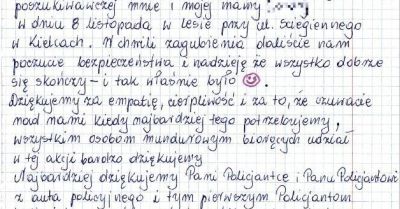 poszukiwawczej mnie i mojej mamy
w dniu 8 listopada w lesie przy ul. Ściegiennego
w Kielcach. W chwili zagubienia daliście nam
poczucie bezpieczeństwa i nadzieję że wszystko dobrze
się skończy - i tak właśnie było ☺.
Dziękujemy za empatię, cierpliwość i za to, że czuwacie
nad nami kiedy najbardziej tego potrzebujemy,
wszystkim osobom mundurowym biorących udział
w tej akcji bardzo dziękujemy
Najbardziej dziękujemy Pani Policjantce i Panu Policjantowi
z auta policyjnego i tym pierwszym Policjantom